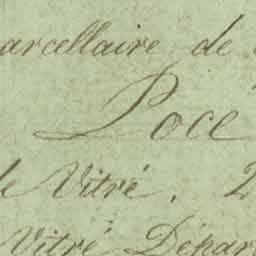 arcellaire de
Pocé
de Vitré.
Vitré Dépar